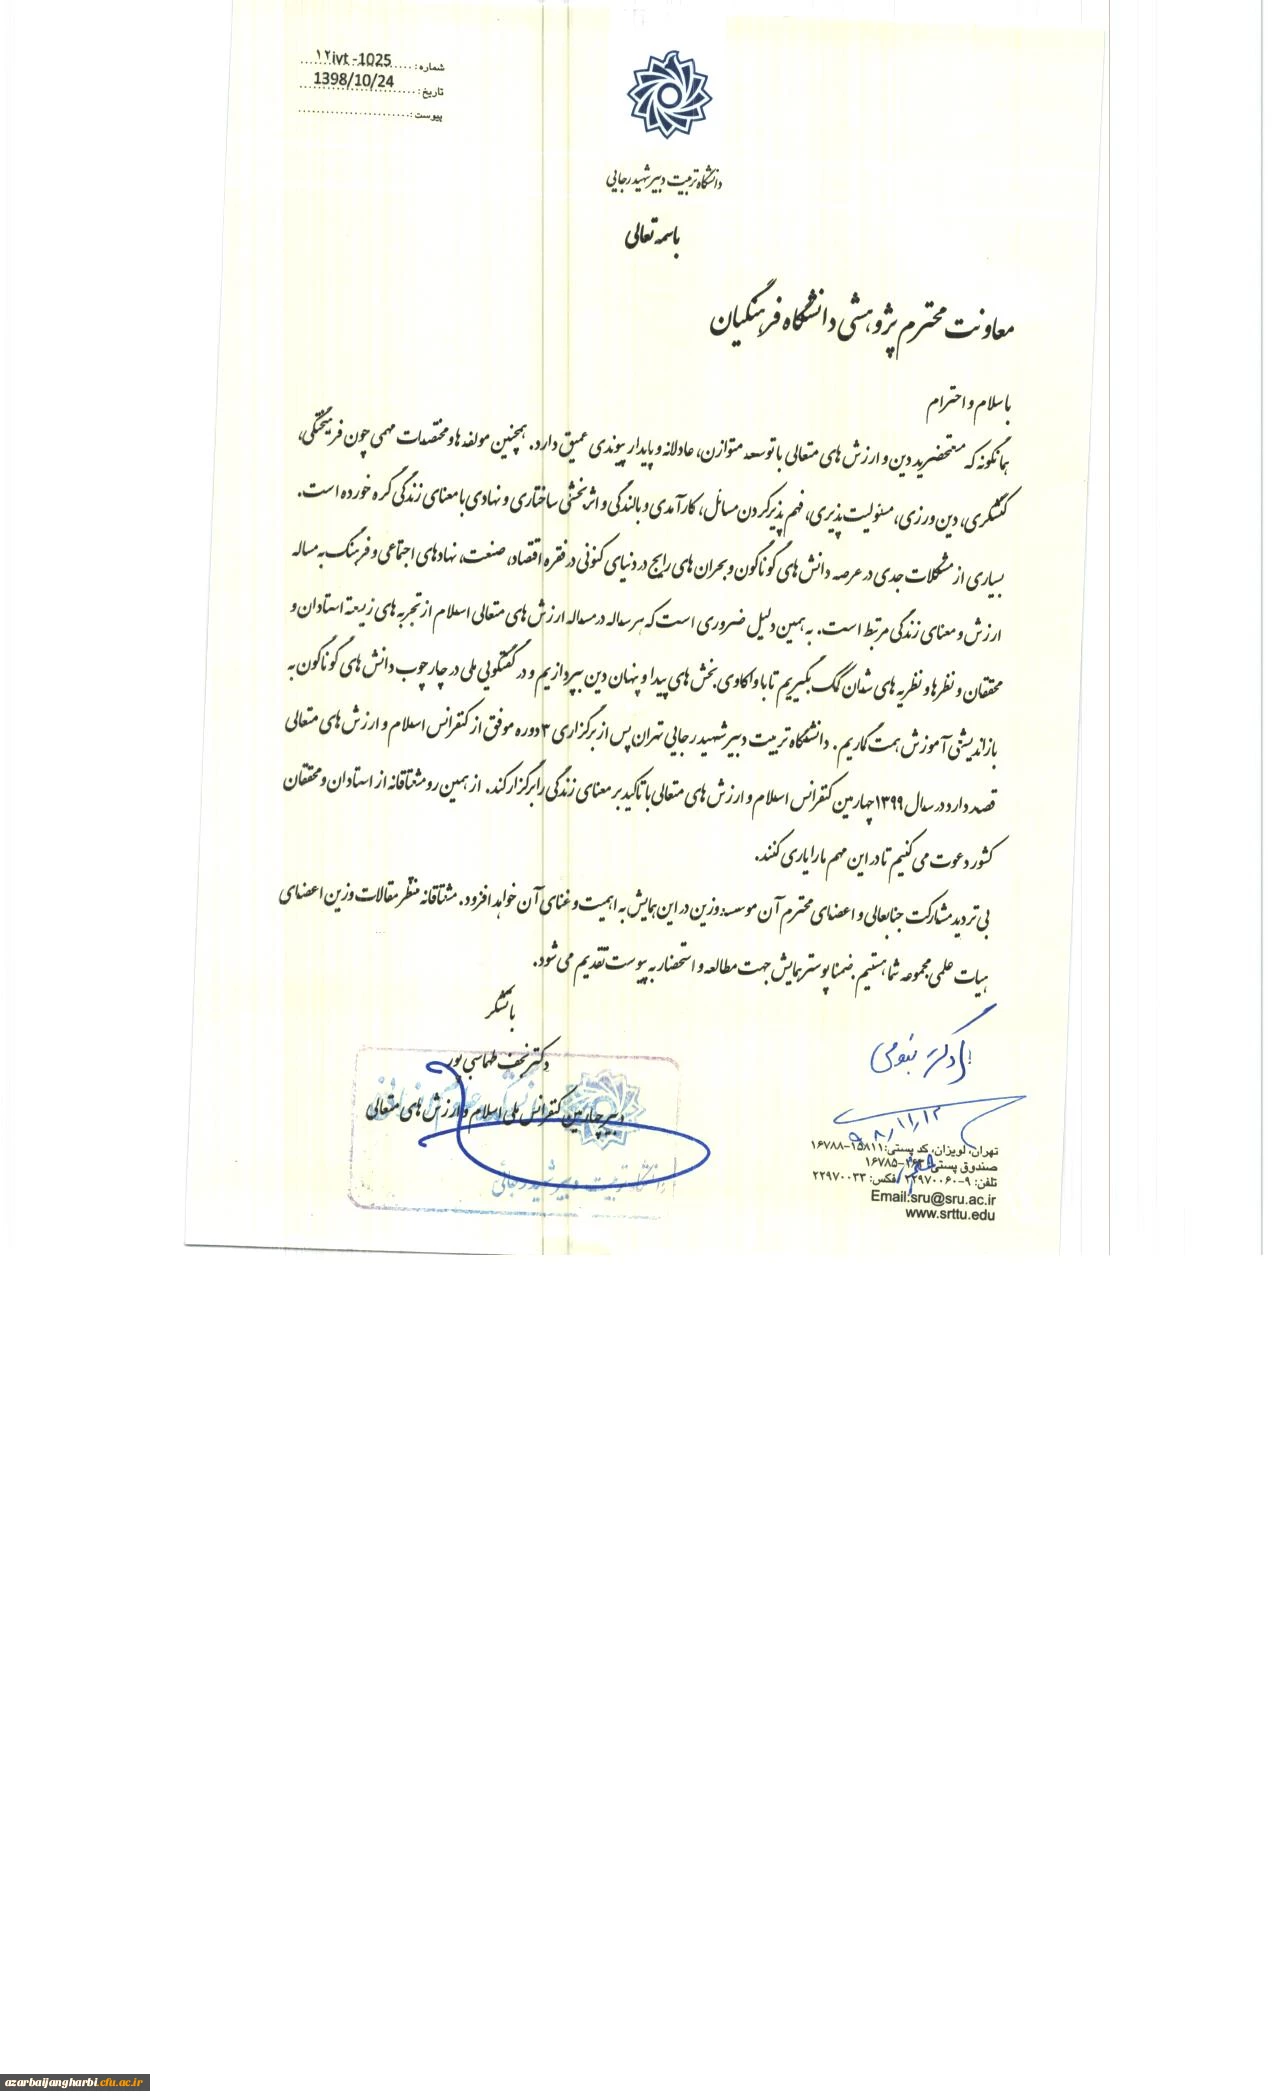 شماره: ۱۲ivt -1025
تاریخ: 1398/10/24
پیوست:
دانشگاه تربیت دبیر شهید رجایی
باسمه تعالی
معاونت محترم پژوهشی دانشگاه فرهنگیان
باسلام و احترام
همانگونه که مستحضرید دین و ارزش های متعالی با توسعه متوازن، عادلانه و پایدار پیوندی عمیق دارد. همچنین مولفه ها و مختصات مهمی چون فرهیختگی،
کنشگری، دین ورزی، مسئولیت پذیری، فهم پذیر کردن مسائل، کارآمدی و بالندگی و اثربخشی ساختاری و نهادی با معنای زندگی گره خورده است.
بسیاری از مشکلات جدی در عرصه دانش های گوناگون و بحران های رایج در دنیای کنونی در فقره اقتصاد، صنعت، نهادهای اجتماعی و فرهنگ به مساله
ارزش و معنای زندگی مرتبط است. به همین دلیل ضروری است که هرساله در مساله ارزش های متعالی اسلام از تجربه های زیسته استادان و
محققان و نظرها و نظریه های شان کمک بگیریم تا با واکاوی بخش های پیدا و پنهان دین بپردازیم و در گفتگویی ملی در چارچوب دانش های گوناگون به
بازاندیشی آموزش همت گماریم. دانشگاه تربیت دبیر شهید رجایی تهران پس از برگزاری ۳ دوره موفق از کنفرانس اسلام و ارزش های متعالی
قصد دارد در سال ۱۳۹۹ چهارمین کنفرانس اسلام و ارزش های متعالی با تاکید بر معنای زندگی را برگزار کند. از همین رو مشتاقانه از استادان و محققان
کشور دعوت می کنیم تا در این مهم ما را یاری کنند.
بی تردید مشارکت جنابعالی و اعضای محترم آن موسسه وزین در این همایش به اهمیت و غنای آن خواهد افزود. مشتاقانه منتظر مقالات وزین اعضای
هیات علمی مجموعه شما هستیم. ضمنا پوستر همایش جهت مطالعه و استحضار به پیوست تقدیم می شود.
باتشکر
دکتر نجف طهماسبی پور
دبیر چهارمین کنفرانس ملی اسلام و ارزش های متعالی
دانشگاه تربیت دبیر شهید رجائی
۹۸/۱۱/۱۲
تهران، لویزان، کد پستی: ۱۵۸۱۱-۱۶۷۸۸
صندوق پستی ۱۶۷۸۵-۱۶۳
تلفن: ۹-۲۲۹۷۰۰۶۰ فکس: ۲۲۹۷۰۰۳۳
Email:sru@sru.ac.ir
www.srttu.edu
azarbaijangharbi.cfu.ac.ir